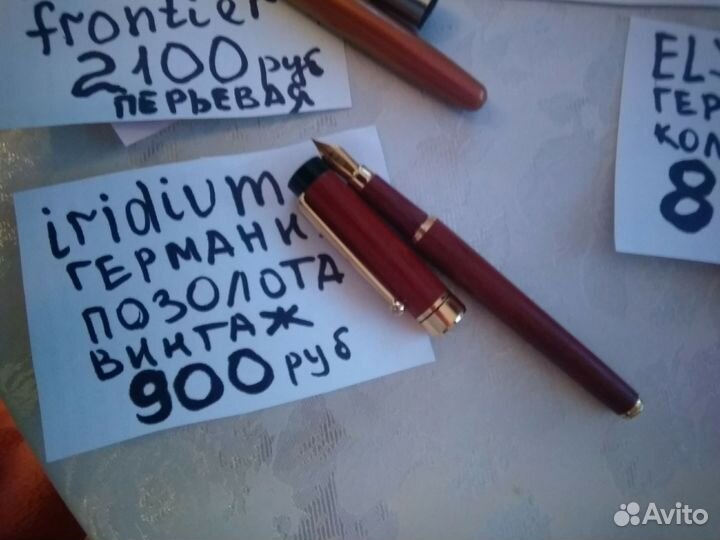 frontier
2100 руб
ПЕРЬЕВАЯ
iridium
ГЕРМАНИ
ПОЗОЛОТА
ВИНТАЖ
900 руб
ГЕР
8
Avito